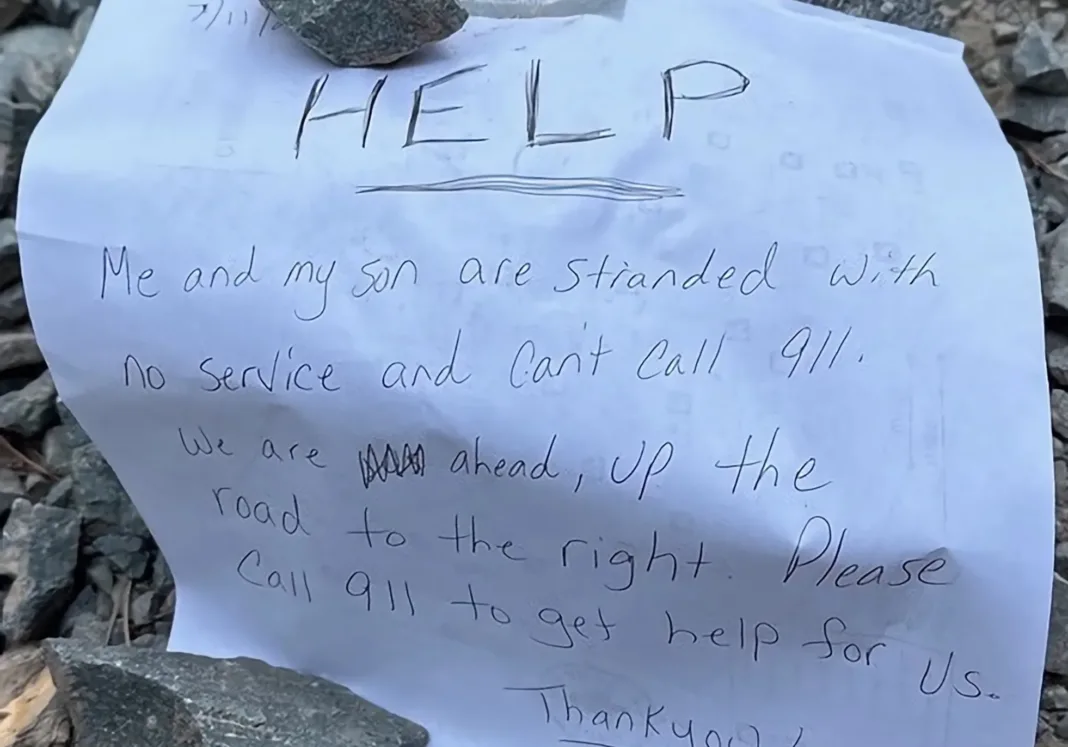 7/11/
HELP
Me and my son are stranded with
no service and Can't Call 911.
We are ahead, up the
road to the right. Please
Call 911 to get help for Us.
Thankyou!